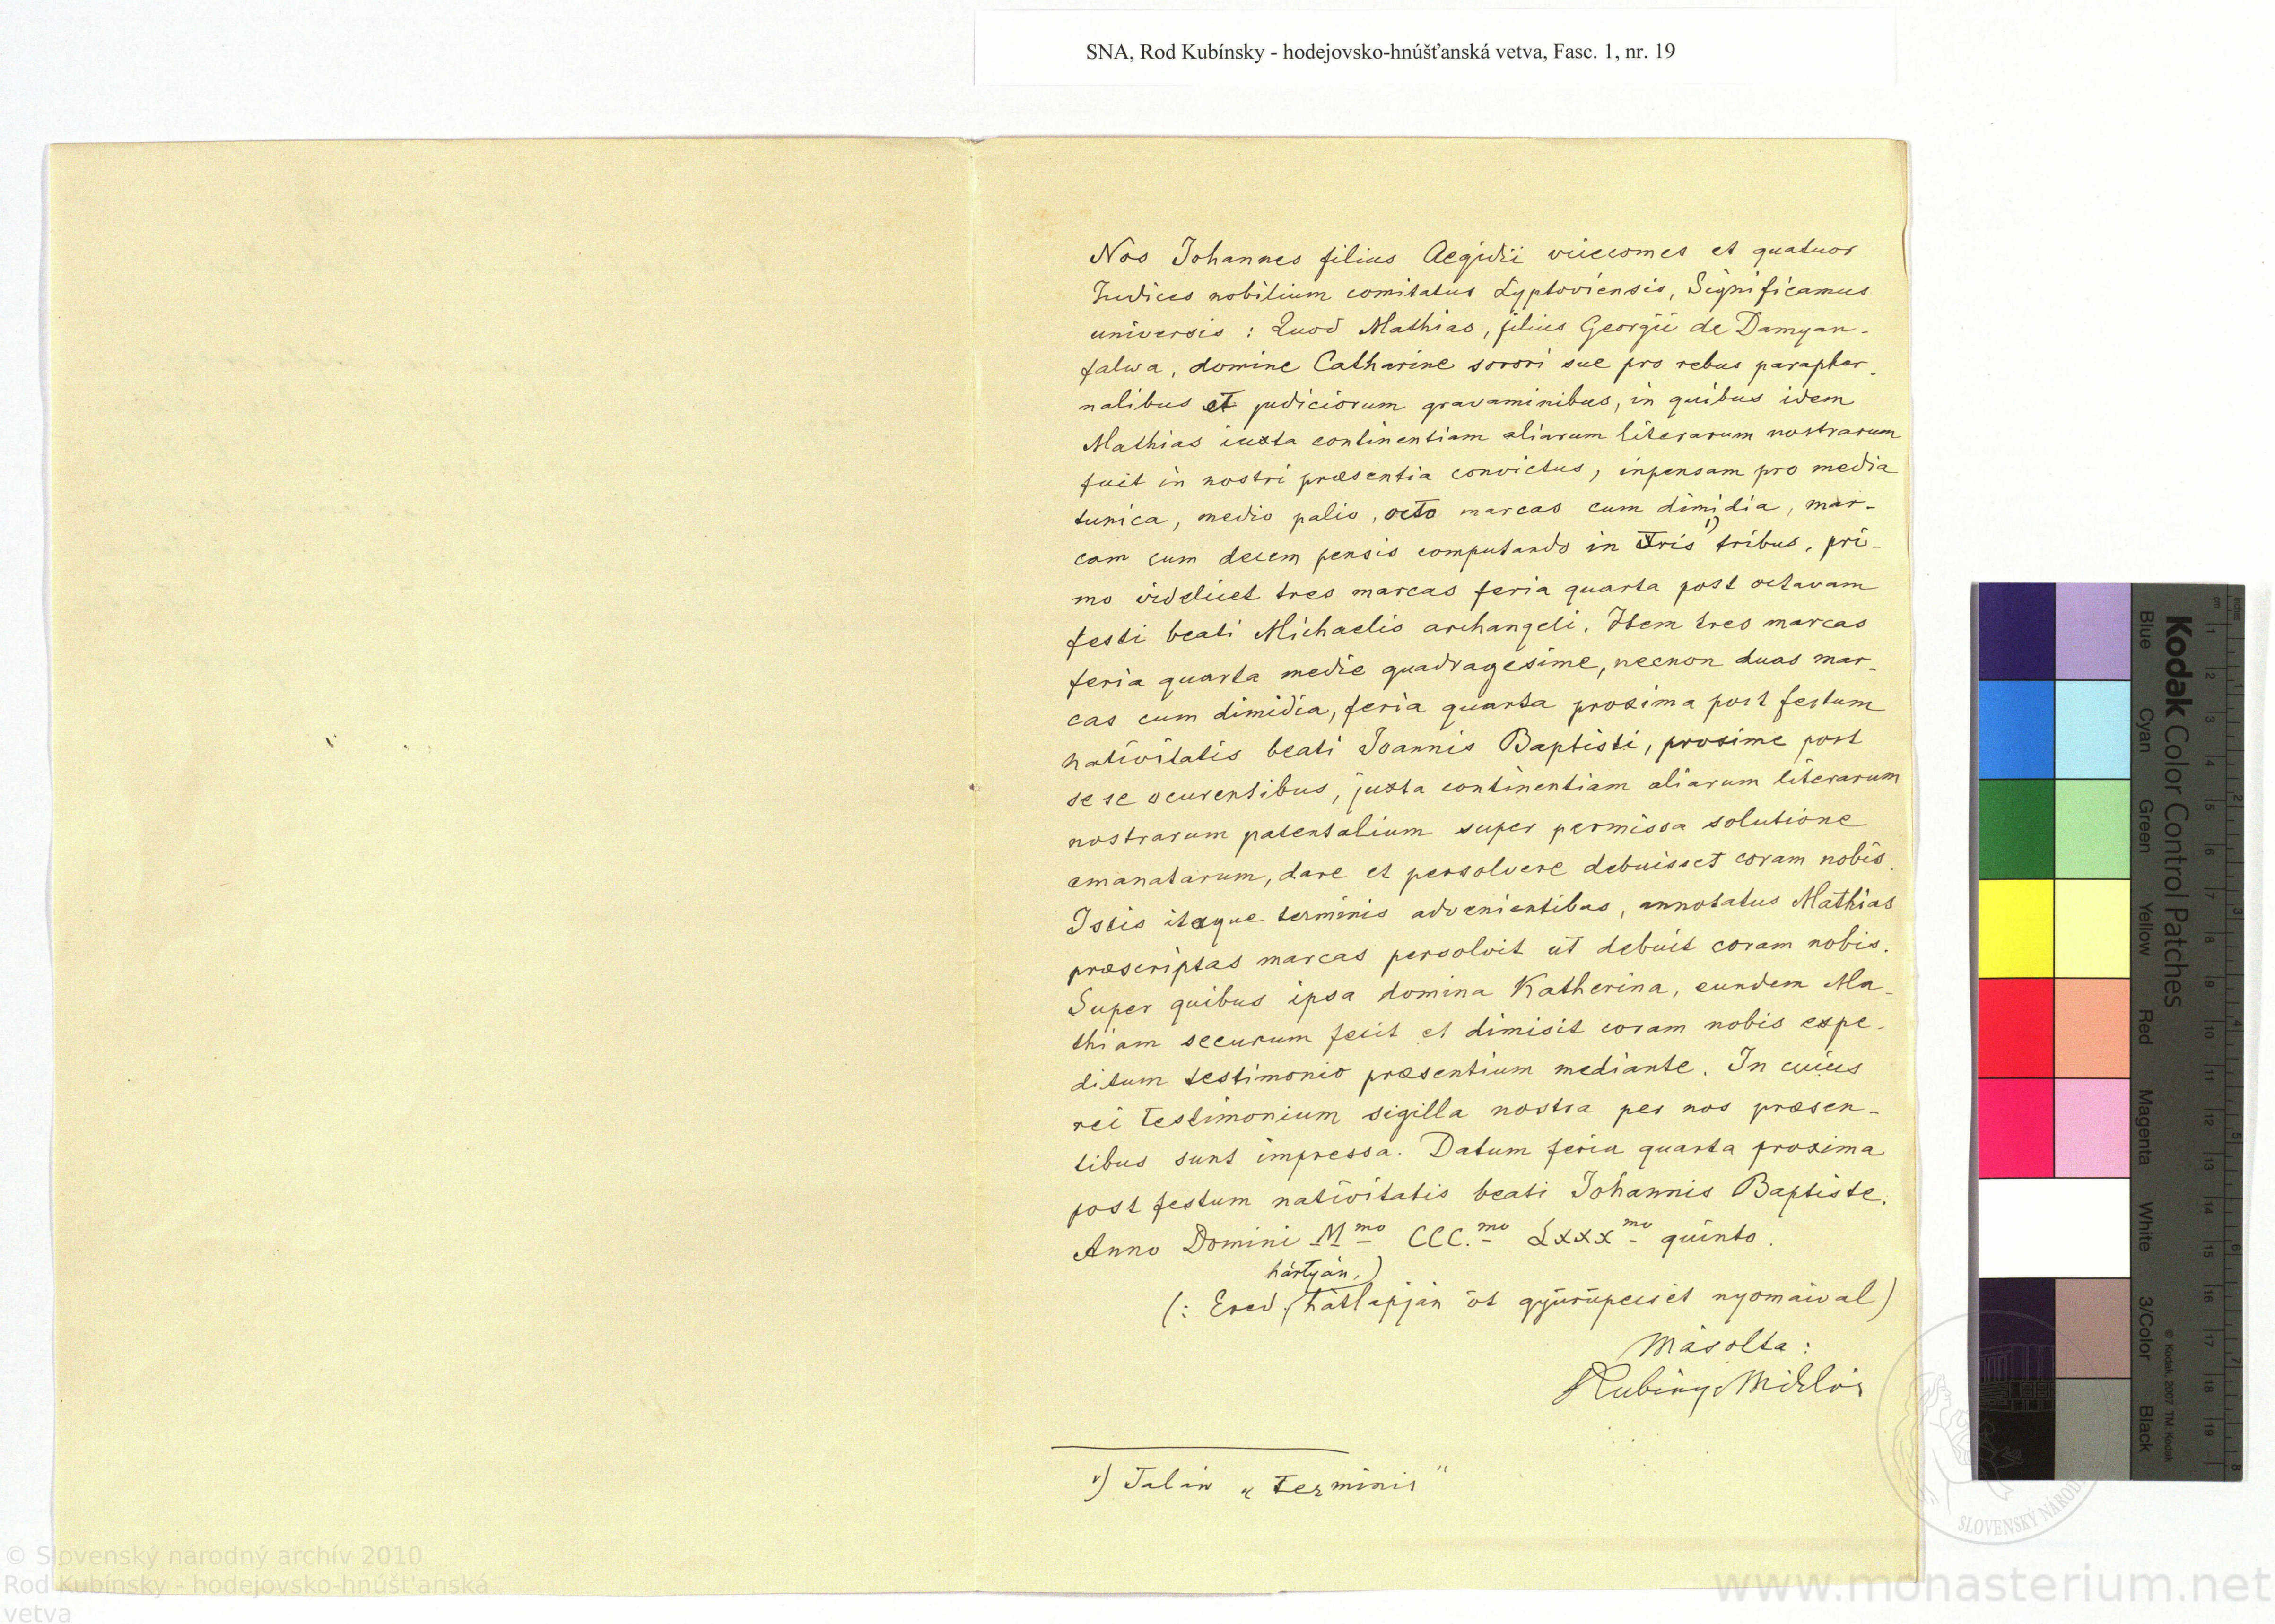 SNA, Rod Kubínsky - hodejovsko-hnúšťanská vetva, Fasc. 1, nr. 19
Nos Johannes filius Aegidii vicecomes et quatuor
Iudices nobilium comitatus Lyptoviensis, Significamus
universis : Quod Mathias, filius Georgii de Damyan-
falwa, domine Catharine sorori sue pro rebus parapher-
nalibus et judiciorum gravaminibus, in quibus idem
Mathias iuxta continentiam aliarum literarum nostrarum
fuit in nostri præsentia convictus, inpensam pro media
tunica, medio palio, octo marcas cum dimidia, mar-
cam cum decem pensis computando in Tris 1) tribus, pri-
mo videlicet tres marcas feria quarta post octavam
festi beati Michaelis archangeli. Item tres marcas
feria quarta medie quadragesime, necnon duas mar-
cas cum dimidia, feria quarta proxima post festum
nativitatis beati Joannis Baptisti, proxime post
se se ocurentibus, juxta continentiam aliarum literarum
nostrarum patentalium super permissa solutione
emanatarum, dare et persolvere debuisset coram nobis.
Istis itaque terminis advenientibus, annotatus Mathias
præscriptas marcas persolvit ut debuit coram nobis.
Super quibus ipsa domina Katherina, eundem Ma-
thiam securum fecit et dimisit coram nobis expe-
ditum testimonio præsentium mediante. In cuius
rei testimonium sigilla nostra per nos præsen-
tibus sunt impressa. Datum feria quarta proxima
post festum nativitatis beati Johannis Baptiste.
Anno Domini Mmo CCC.mo Lxxxmo quinto.
hártyán,)
(: Ered. hátlapján öt gyürüpecsét nyomaival)
Másolta:
Kubinyi Miklós
1) Talán „terminis"
Kodak Color Control Patches
Blue Cyan Green Yellow Red Magenta White 3/Color Black
© Kodak, 2007 TM: Kodak
cm 1 2 3 4 5 6 7 8 9 10 11 12 13 14 15 16 17 18 19
inches 1 2 3 4 5 6 7 8
SLOVENSKÝ NÁROD
© Slovenský národný archív 2010
Rod Kubínsky - hodejovsko-hnúšťanská
vetva
www.monasterium.net